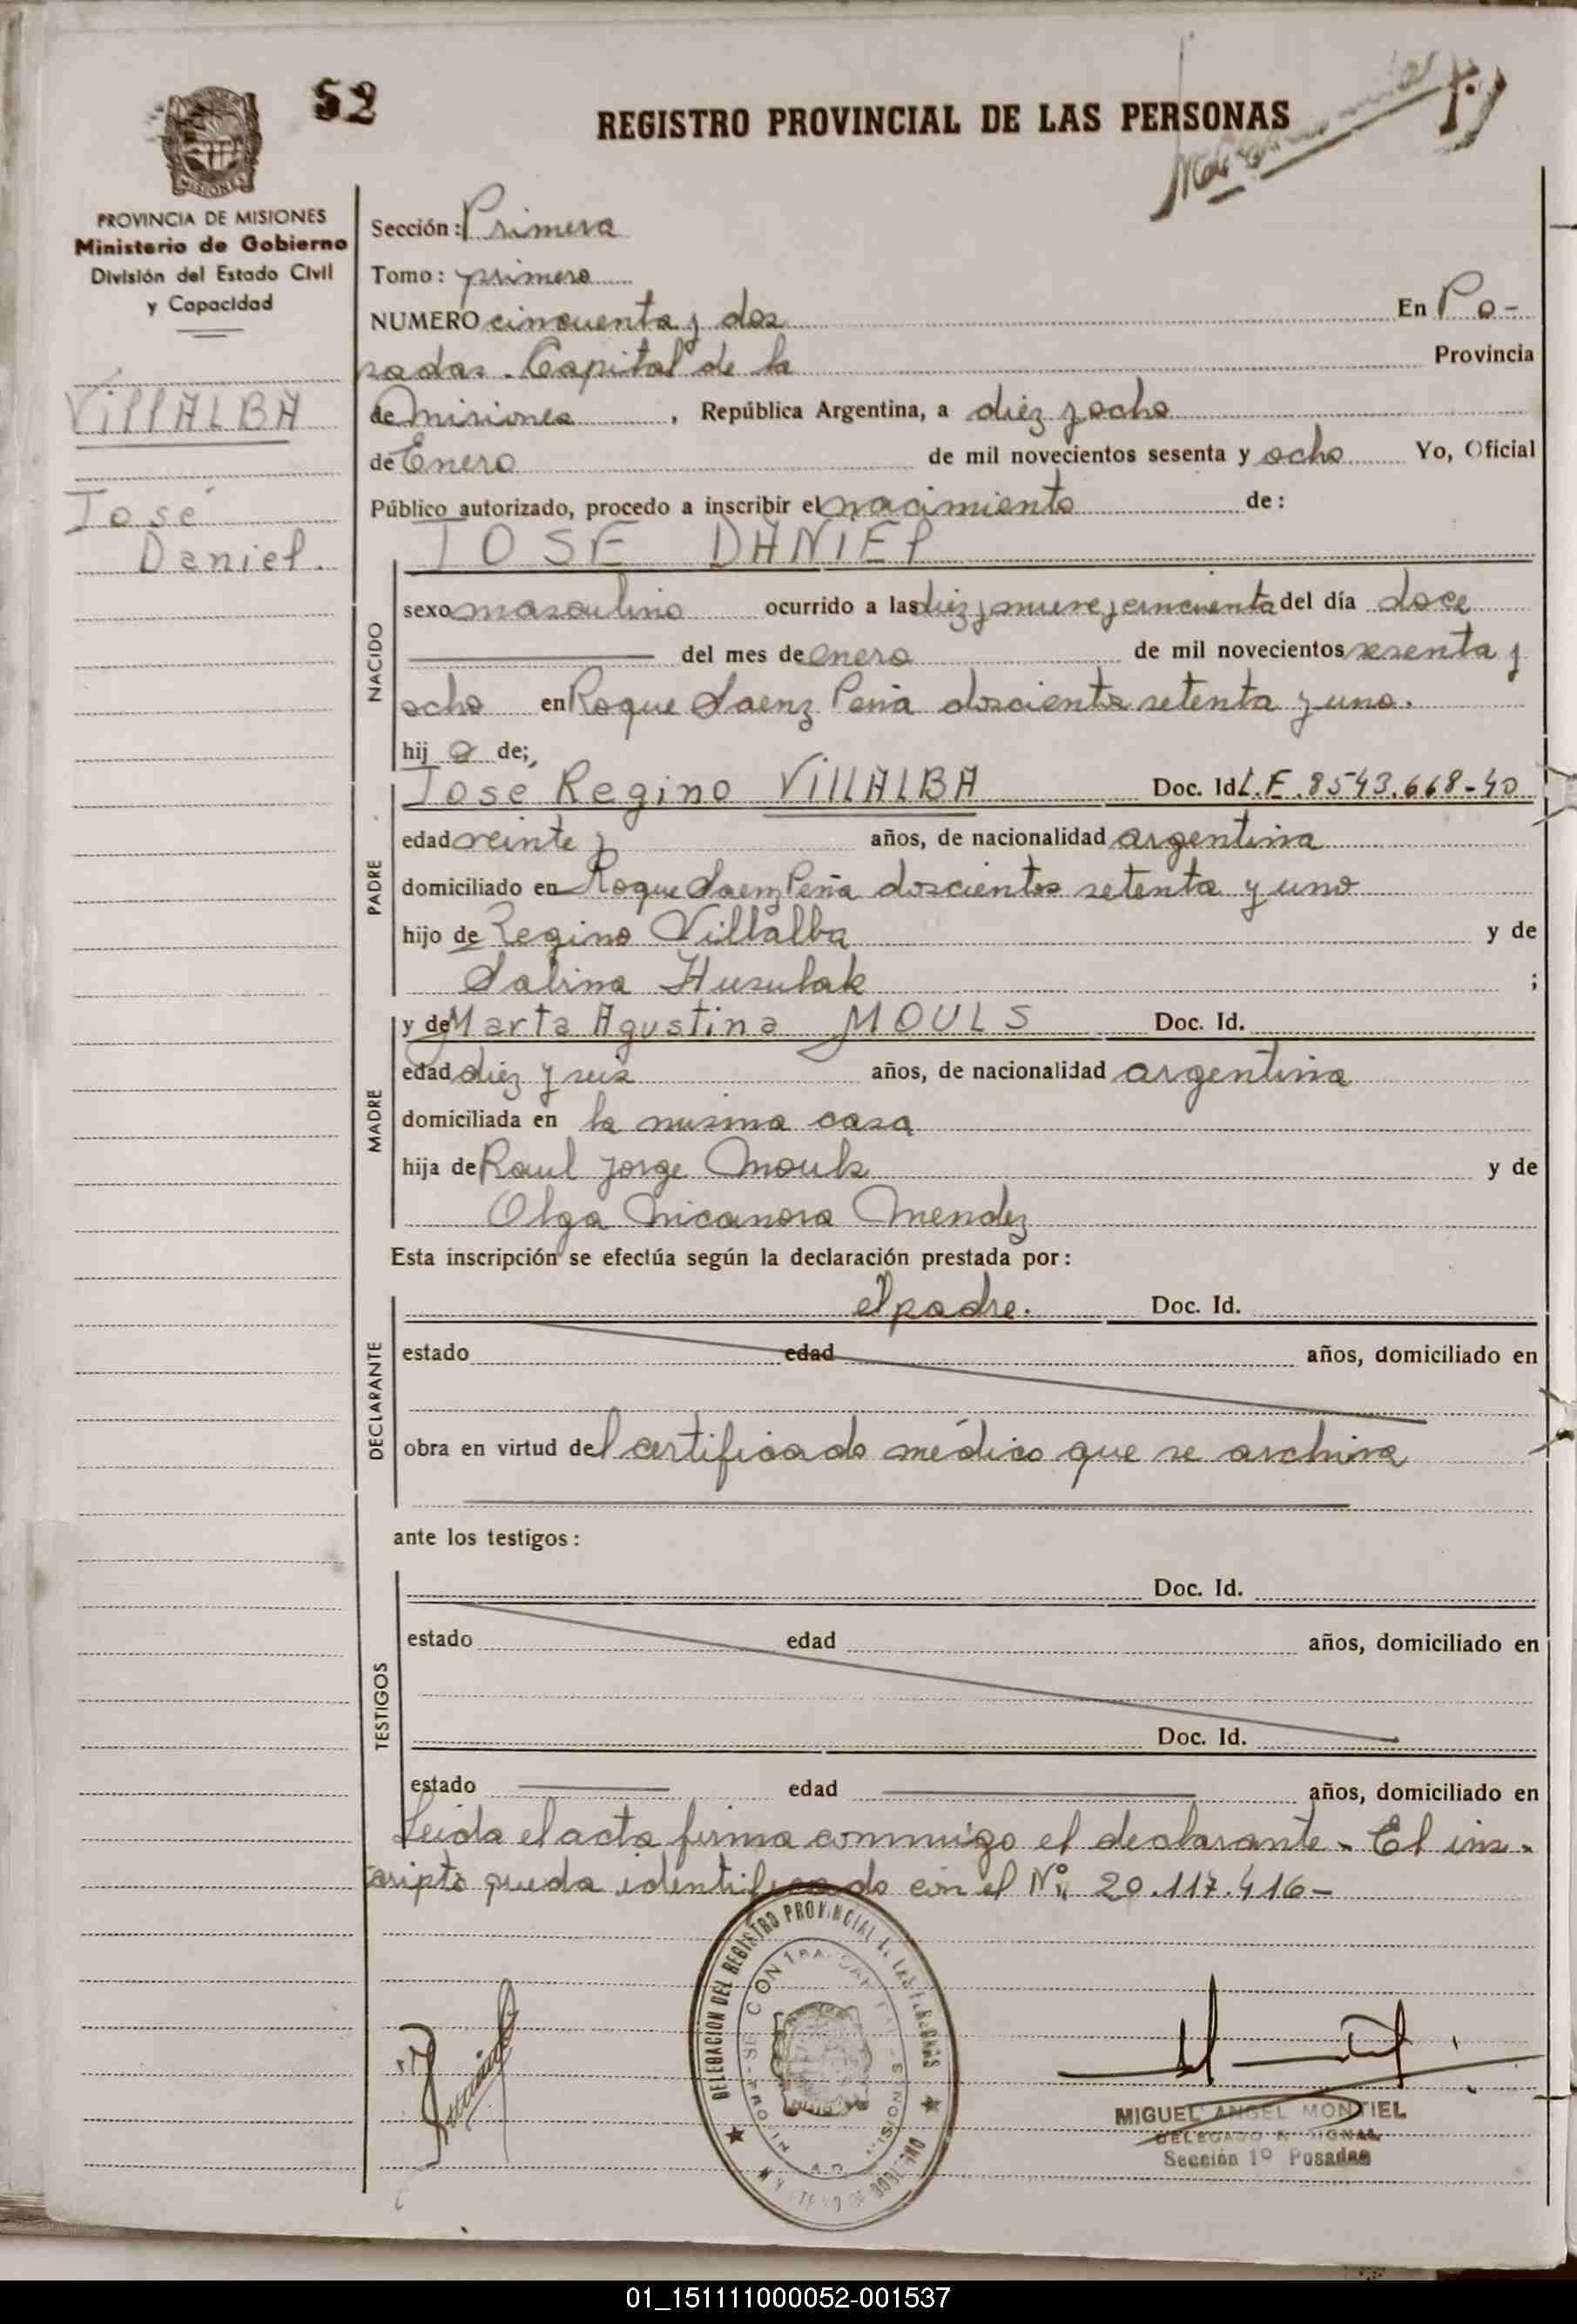 52
REGISTRO PROVINCIAL DE LAS PERSONAS
PROVINCIA DE MISIONES
Ministerio de Gobierno
División del Estado Civil
y Capacidad
VillALBA
José
Daniel.
Sección: Primera
Tomo: primero
NUMERO cincuenta y dos En Po-
sadas. Capital de la Provincia
de Misiones, República Argentina, a diez y ocho
de Enero de mil novecientos sesenta y ocho Yo, Oficial
Público autorizado, procedo a inscribir el nacimiento de:
JOSE DANIEL
NACIDO
sexo masculino ocurrido a las diez y nueve y cincuenta del día doce
del mes de enero de mil novecientos sesenta y
ocho en Roque Saenz Peña doscientos setenta y uno.
hij o de;
PADRE
José Regino VillALBA Doc. Id L.E. 8543.668-40
edad veinte y años, de nacionalidad argentina
domiciliado en Roque Saenz Peña doscientos setenta y uno
hijo de Regino Villalba y de
Sabina Husulak ;
MADRE
y de Marta Agustina MOULS Doc. Id.
edad diez y seis años, de nacionalidad argentina
domiciliada en la misma casa
hija de Raul Jorge Mouls y de
Olga Nicanora Mendez
Esta inscripción se efectúa según la declaración prestada por:
DECLARANTE
el padre. Doc. Id.
estado edad años, domiciliado en
obra en virtud del certificado médico que se archiva
ante los testigos:
TESTIGOS
Doc. Id.
estado edad años, domiciliado en
Doc. Id.
estado edad años, domiciliado en
Leida el acta firma conmigo el declarante. El ins-
cripto queda identificado con el Nº 20.117.416-
DELEGACION DEL REGISTRO PROVINCIAL DE LAS PERSONAS
MIGUEL ANGEL MONTIEL
Sección 1º Posadas
01_151111000052-001537